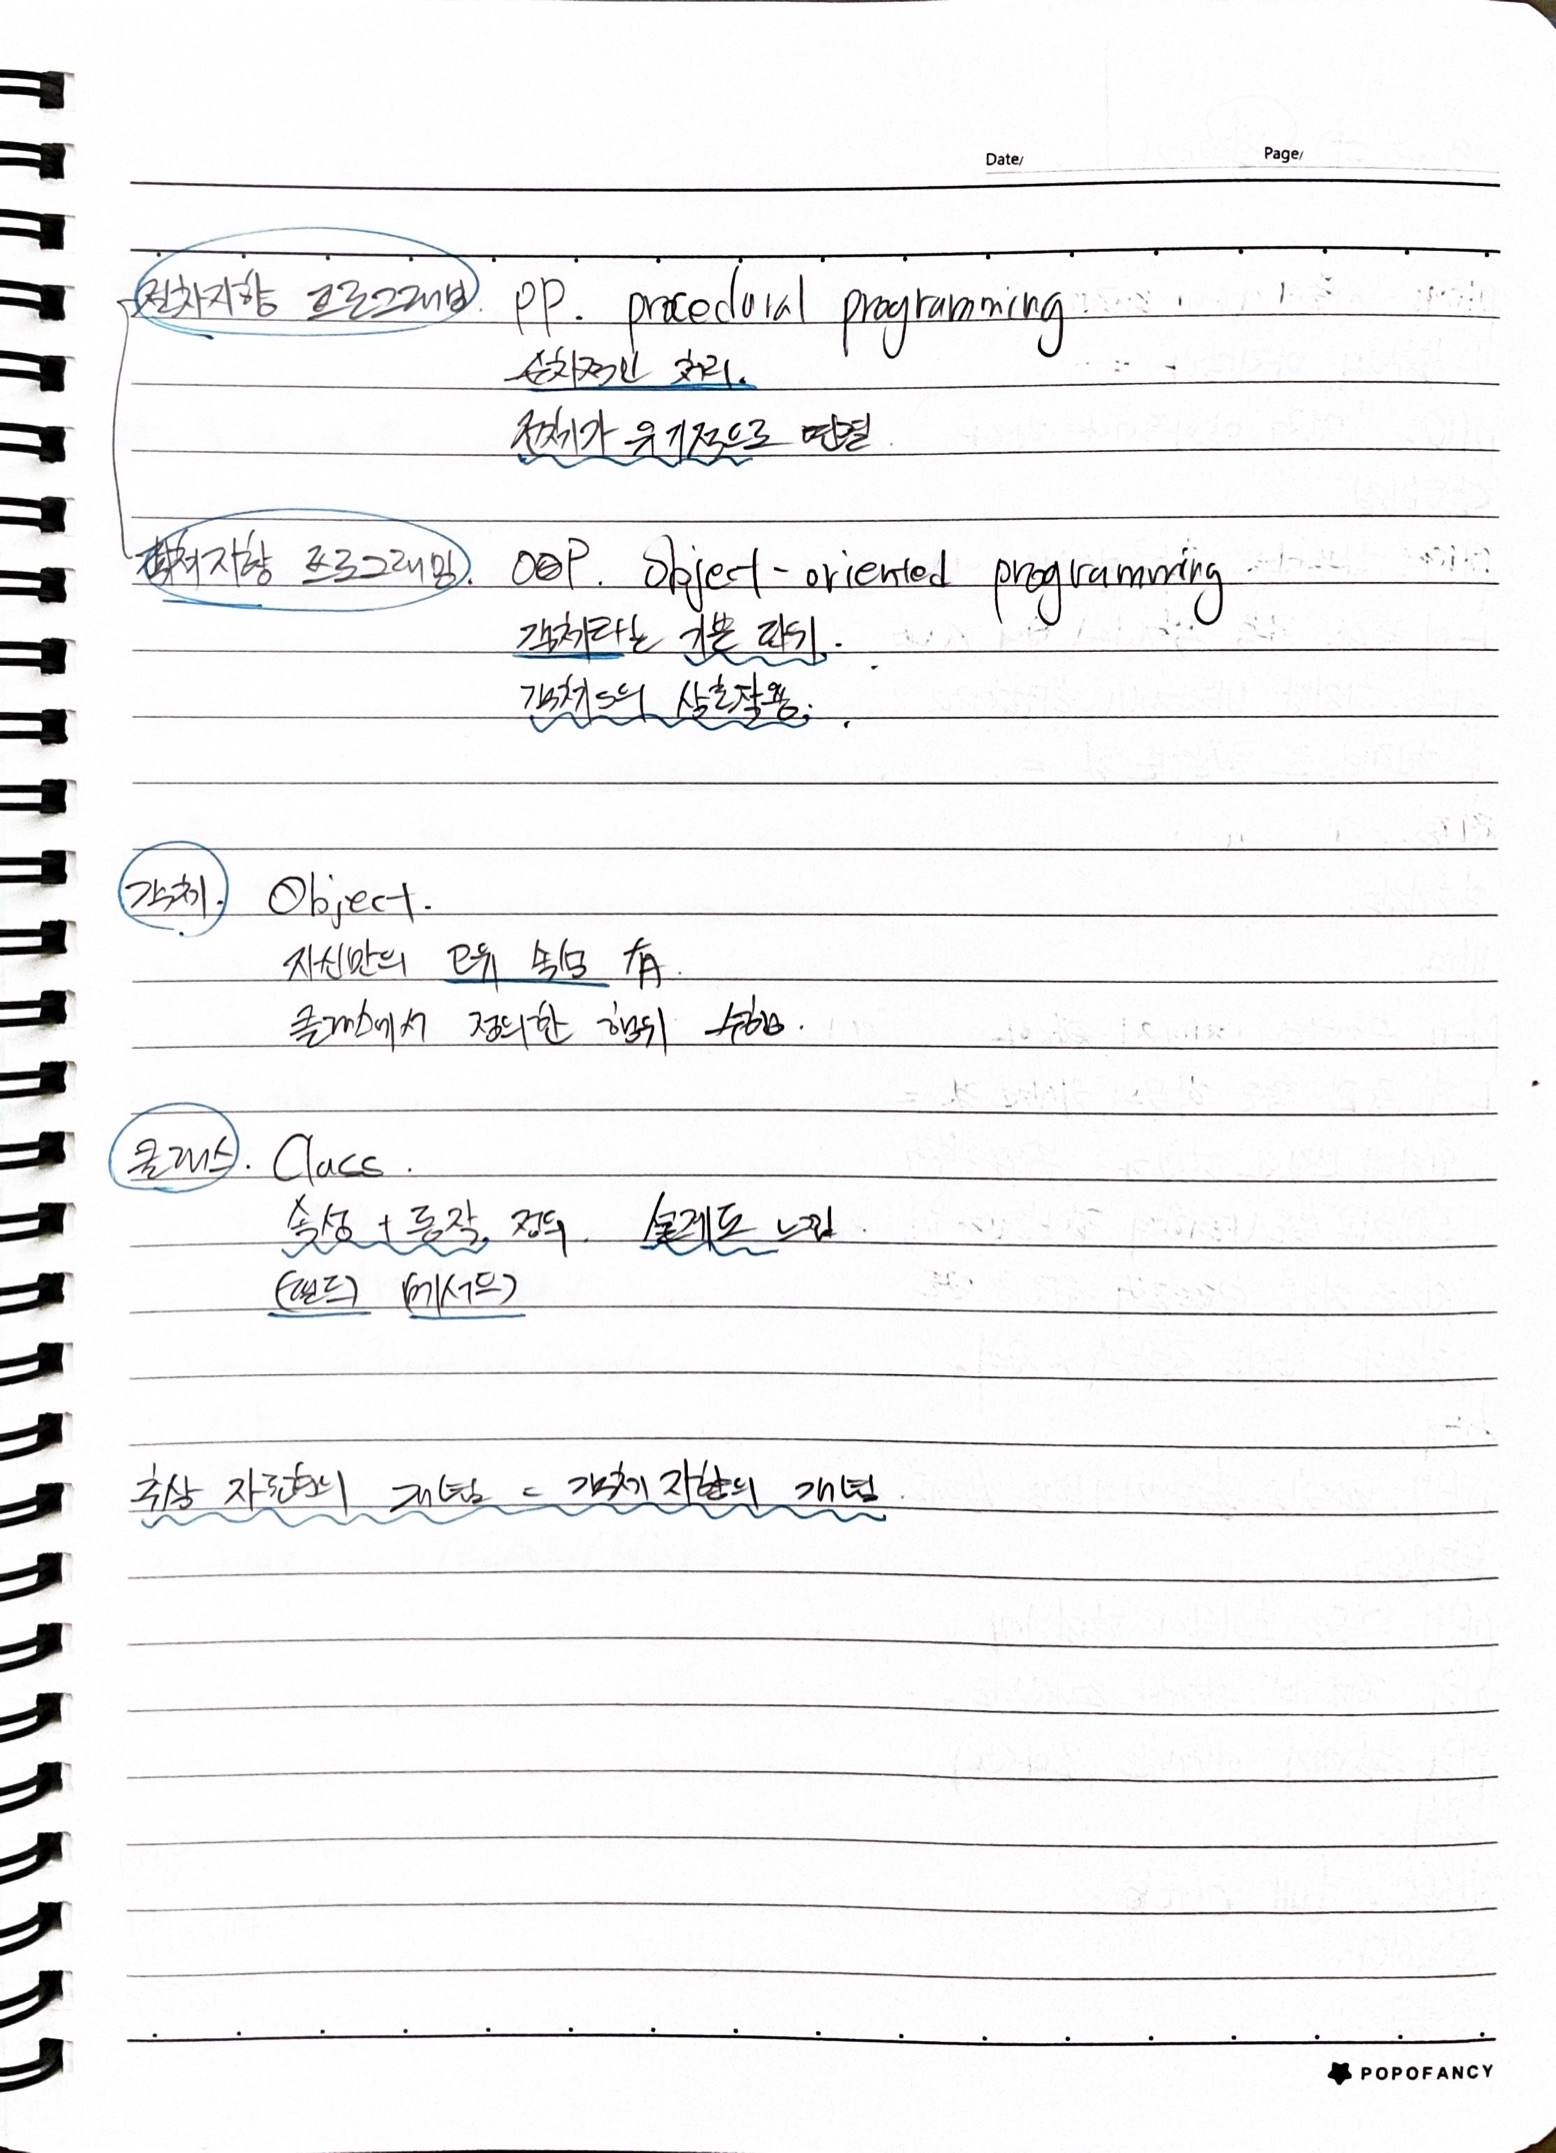 Date/ Page/
절차지향 프로그래밍. PP. procedural programming.
순차적인 처리.
전체가 유기적으로 연결.
객체지향 프로그래밍. OOP. Object-oriented programming
객체라는 기본 단위.
객체s의 상호작용.
객체. Object.
자신만의 고유 속성 有.
클래스에서 정의한 행위 수행.
클래스. Class.
속성 + 동작 정의. 설계도 느낌.
(필드) (메서드)
추상 자료형의 개념 = 객체 지향의 개념.
POPOFANCY